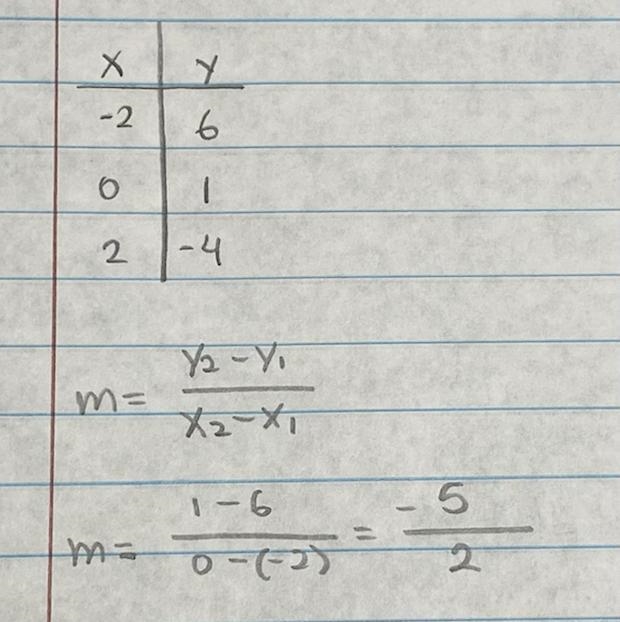 x y
-2 6
0 1
2 -4
m= y2-y1 / x2-x1
m= 1-6 / 0-(-2) = -5 / 2